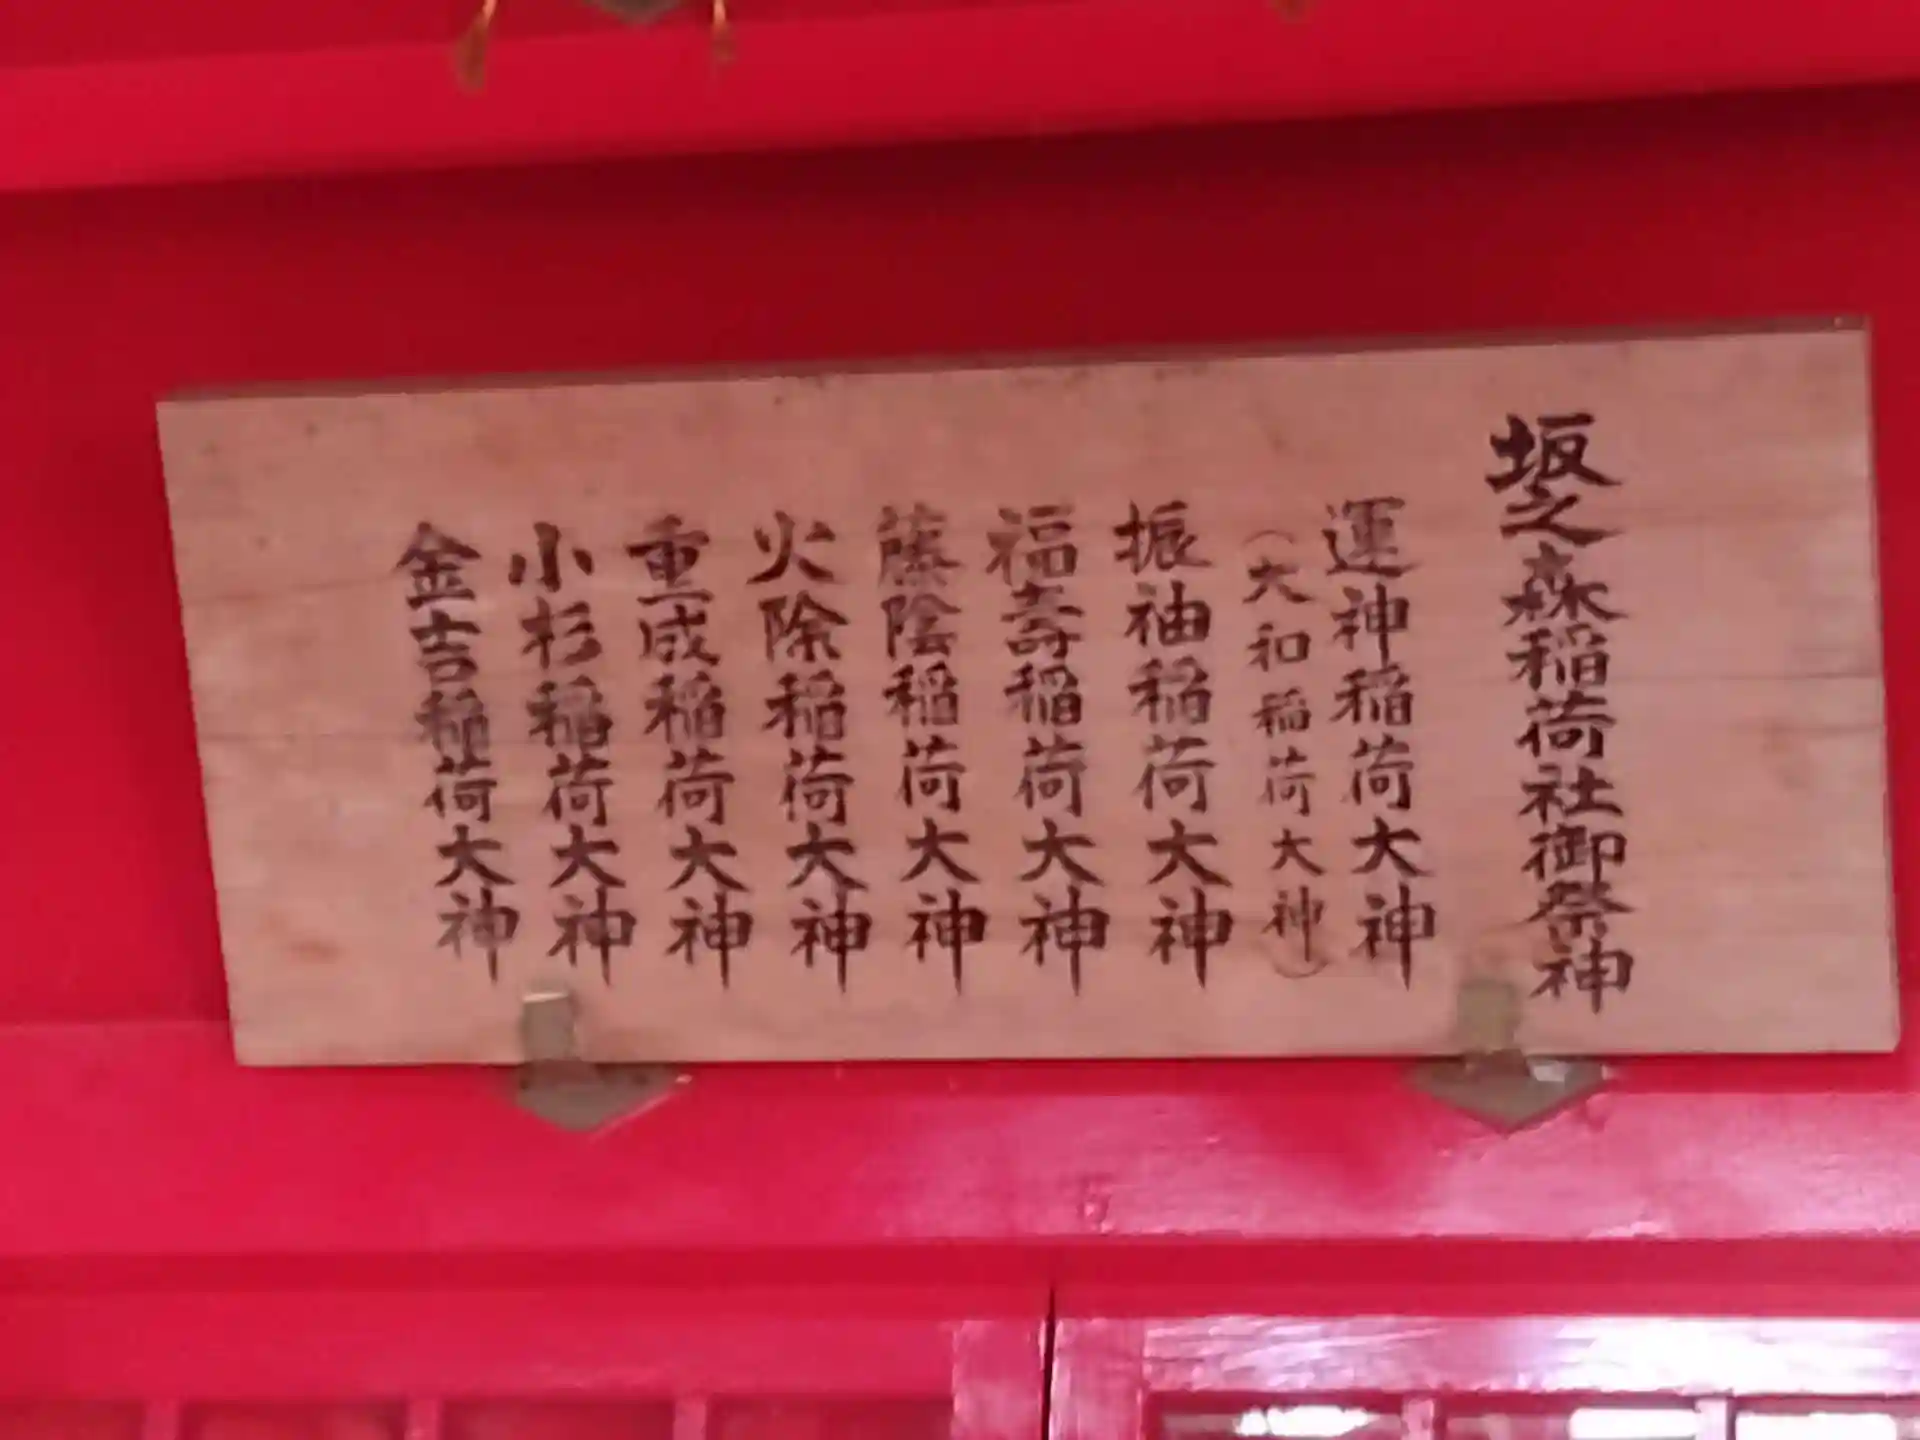 坂之森稲荷社御祭神
運神稲荷大神
（大和稲荷大神）
振袖稲荷大神
福壽稲荷大神
藤陰稲荷大神
火除稲荷大神
重成稲荷大神
小杉稲荷大神
金吉稲荷大神